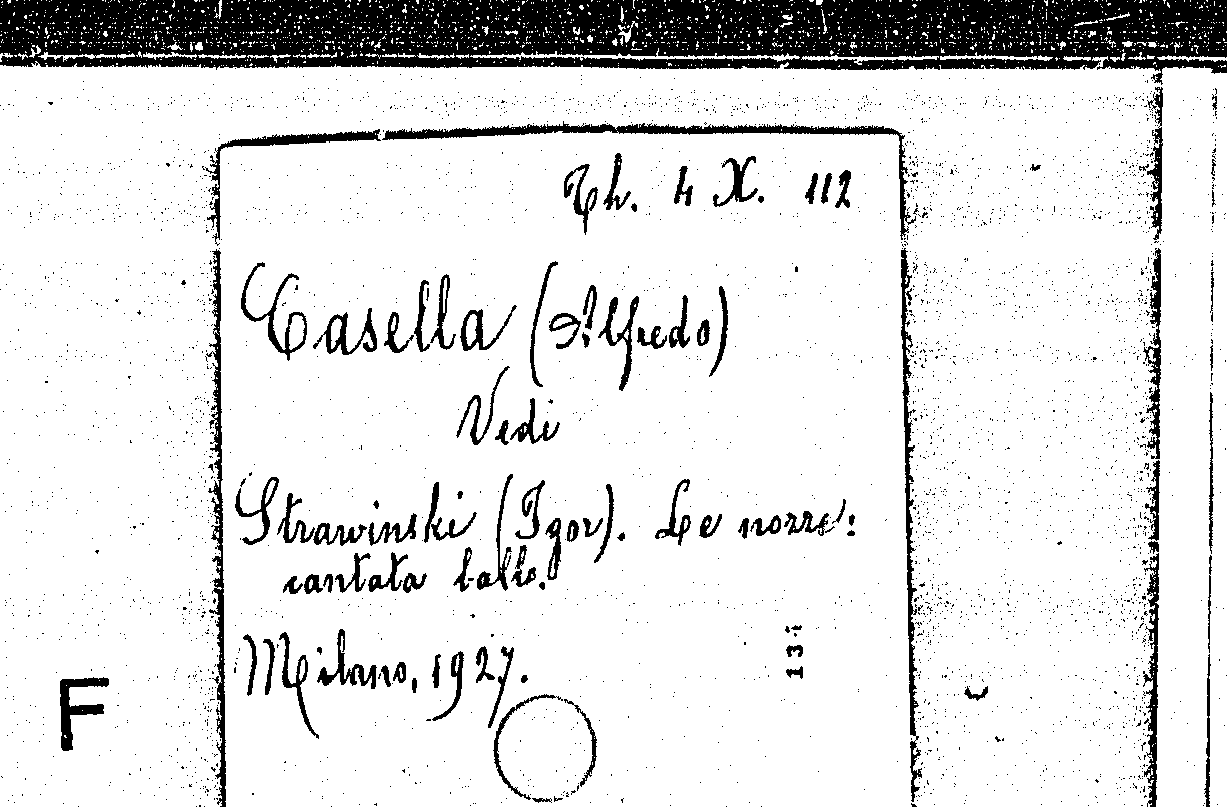 Th. 4 X. 112
Casella (Alfredo)
Vedi
Strawinski (Igor). Le nozze:
cantata ballo.
Milano, 1927.
134
F